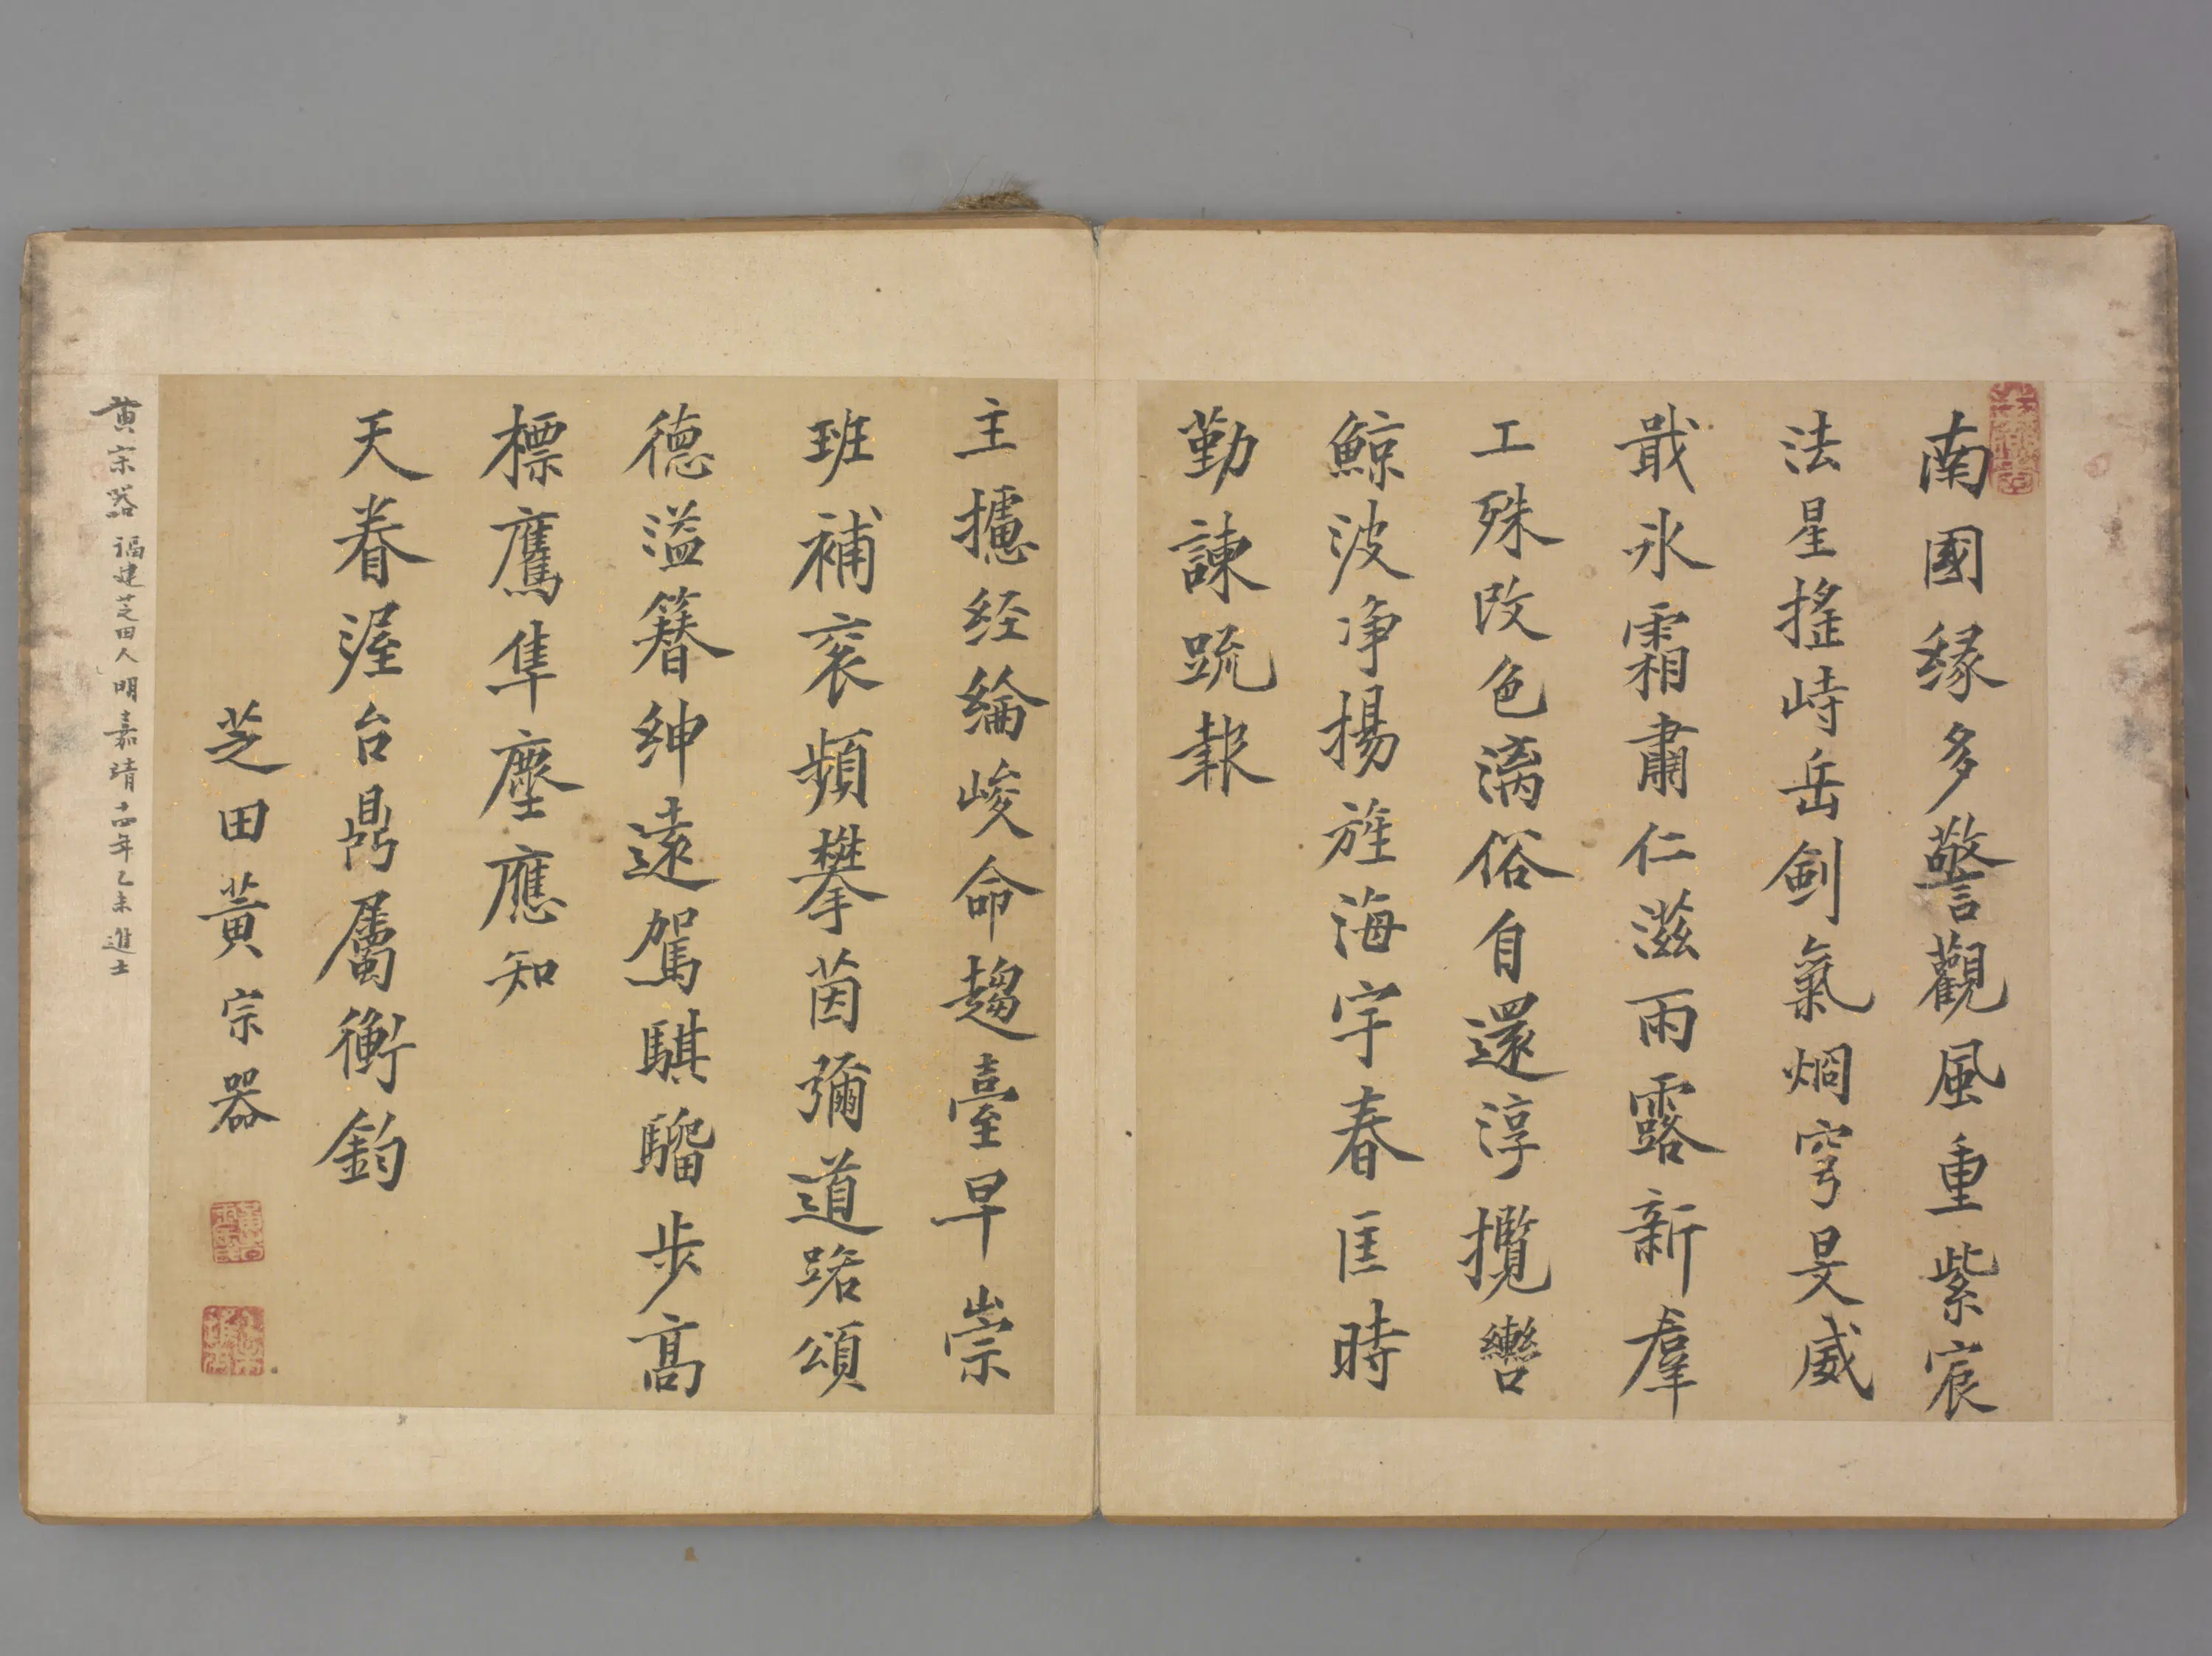 南國緣多警觀風重紫宸
法星搖峙岳劍氣烱穹旻威
戢氷霜肅仁滋雨露新羣
工殊改色漓俗自還淳攬轡
鯨波净揚旌海宇春匡時
勤諫疏報
主攄经綸峻命趨臺早崇
班補衮頻攀茵彌道路頌
德溢簪紳遠駕騏驑步高
標鷹隼塵應知
天眷渥台鼎屬衡鈞
芝田黃宗器
黃宗器 福建芝田人明嘉靖十四年乙未進士